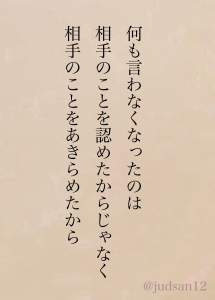 何も言わなくなったのは
相手のことを認めたからじゃなく
相手のことをあきらめたから
@judsan12